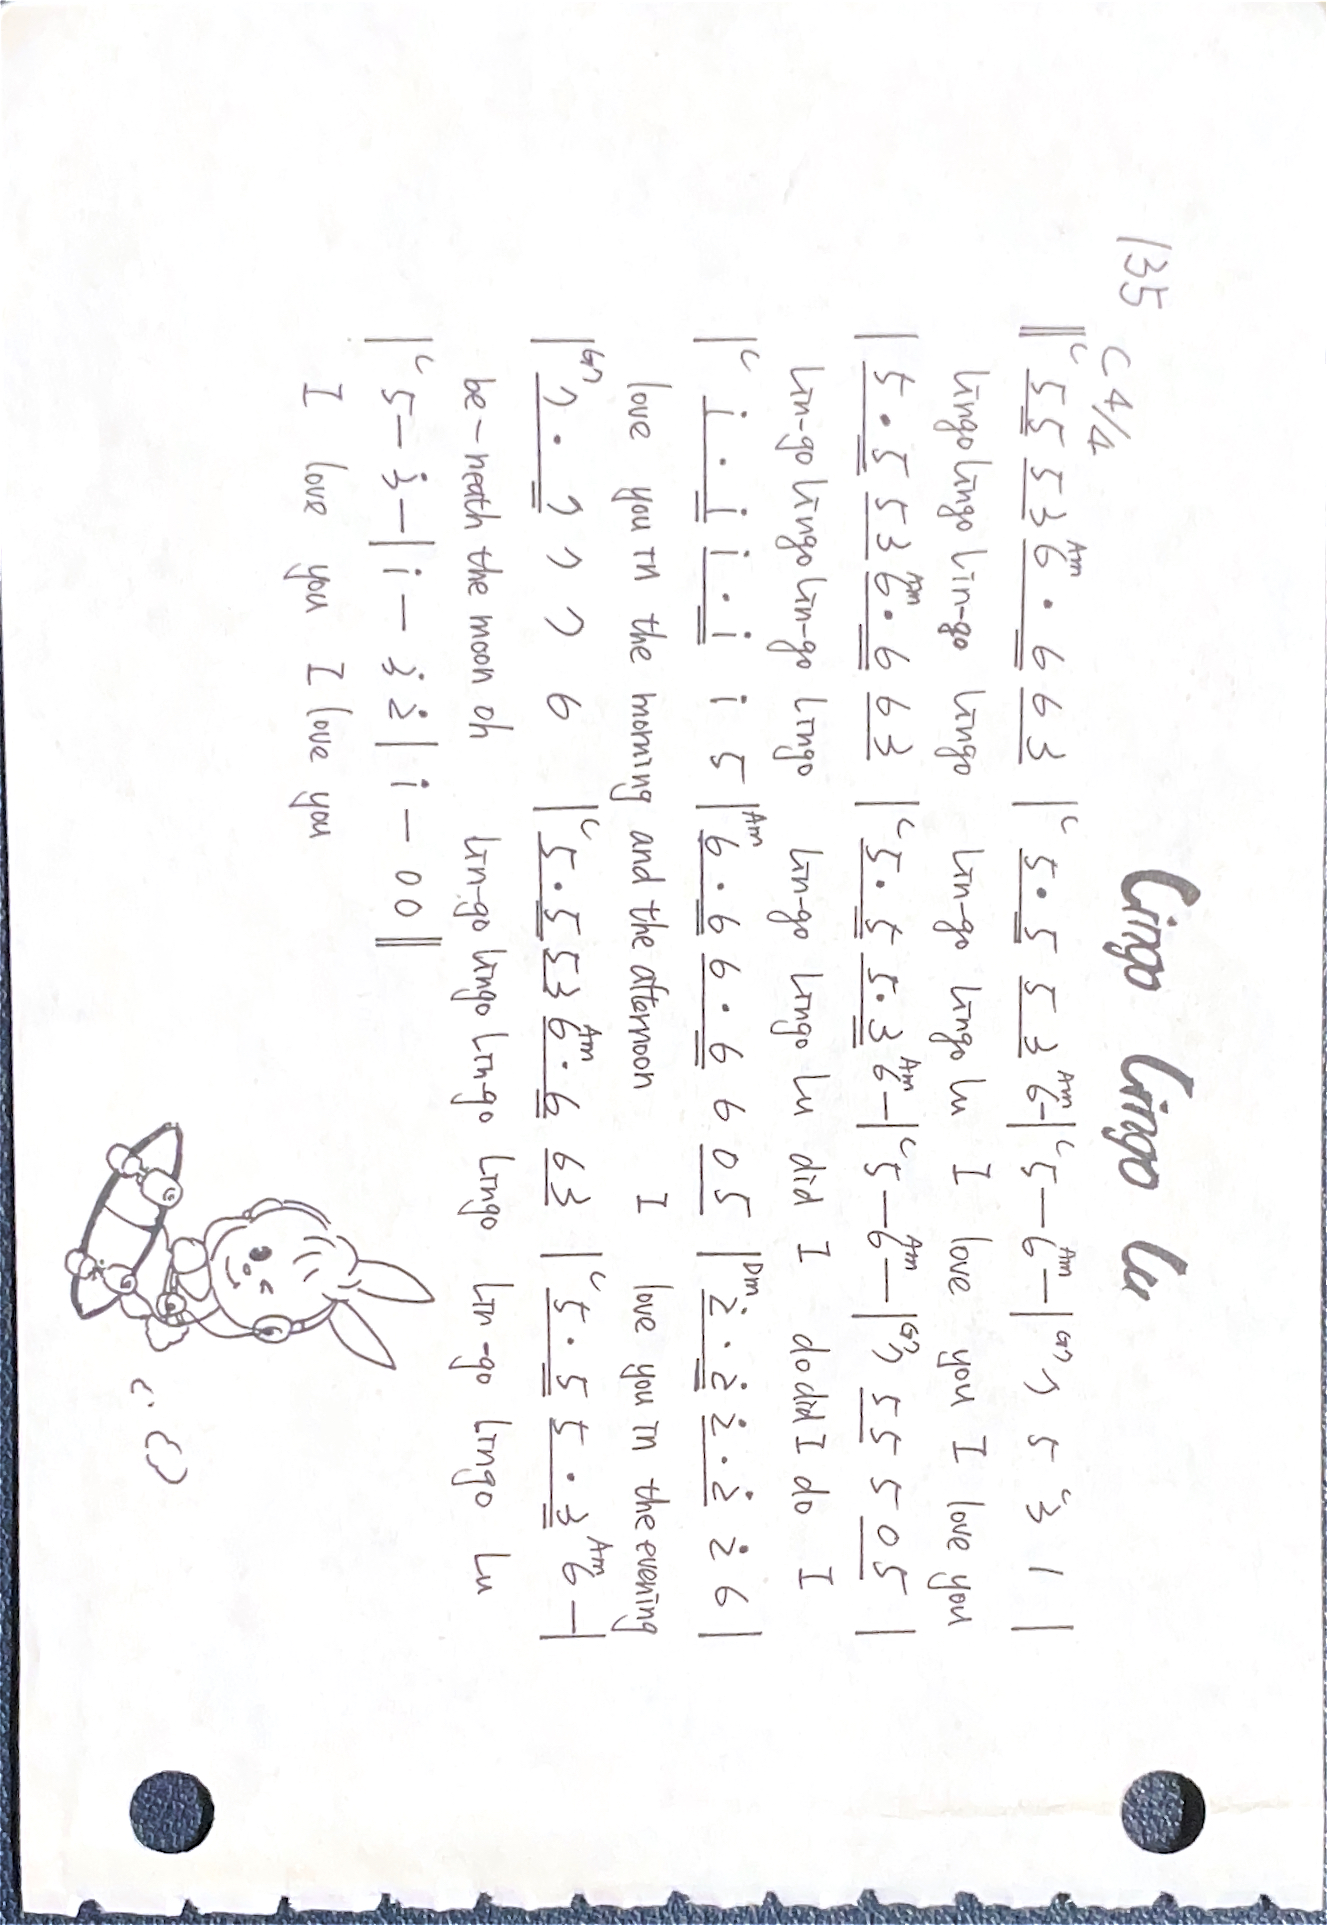 Lingo Lingo Lu
135 C 4/4
‖ C 5 5 5 3 Am 6 · 6 6 3 | C 5 · 5 5 3 Am 6 – | C 5 – Am 6 – | G7 7 5 C 3 1 |
Lingo Lingo Lin-go Lingo Lin-go Lingo Lu I love you I love you
| 5 · 5 5 3 Am 6 · 6 6 3 | C 5 · 5 5 · 3 Am 6 – | C 5 – Am 6 – | G7 7 5 5 5 0 5 |
Lin-go Lingo Lin-go Lingo Lin-go Lingo Lu did I do did I do I
| C i · i i · i i 5 | Am 6 · 6 6 · 6 6 0 5 | Dm 2̇ · 2̇ 2̇ · 2̇ 2̇ 6 |
love you in the morning and the afternoon I love you in the evening
| G7 7 · 7 7 7 6 | C 5 · 5 5 3 Am 6 · 6 6 3 | C 5 · 5 5 · 3 Am 6 – |
be – neath the moon oh Lin-go Lingo Lin-go Lingo Lin-go Lingo Lu
| C 5 – 3̇ – | i – 3̇ 2̇ | i – 0 0 ‖
I love you I love you